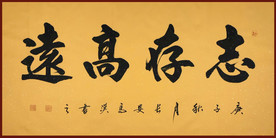 志存高遠
庚子秋月長安
書之